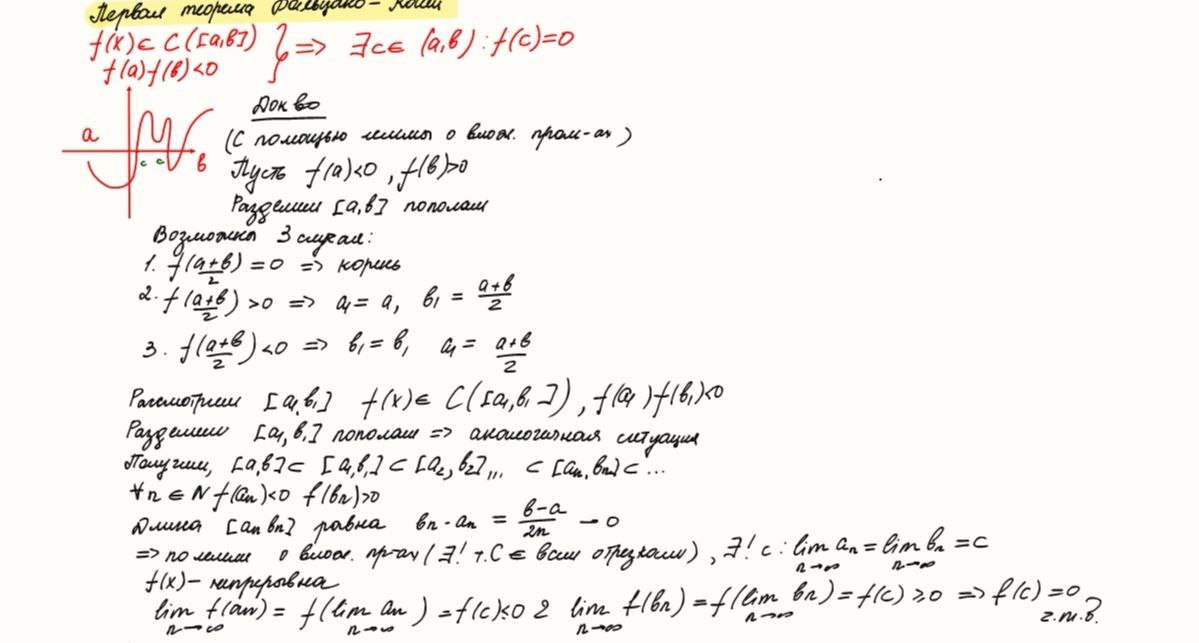 Первая теорема Больцано - Коши
f(x) ∈ C([a,b])
f(a)f(b)<0 } => ∃c∈ (a,b) : f(c)=0
a c c b
Док во
(С помощью леммы о влож. пром-ах)
Пусть f(a)<0, f(b)>0
Разделим [a,b] пополам
Возможны 3 случая:
1. f(a+b/2) = 0 => корень
2. f(a+b/2) >0 => a₁ = a, b₁ = a+b/2
3. f(a+b/2) <0 => b₁ = b, a₁ = a+b/2
Рассмотрим [a₁,b₁] f(x) ∈ C([a₁,b₁]), f(a₁)f(b₁)<0
Разделим [a₁,b₁] пополам => аналогичная ситуация
Получим, [a,b] ⊂ [a₁,b₁] ⊂ [a₂,b₂],,, ⊂ [aₙ,bₙ] ⊂ ...
∀n ∈ N f(aₙ)<0 f(bₙ)>0
Длина [aₙ bₙ] равна bₙ - aₙ = b-a/2n → 0
=> по лемме о влож. пр-ах (∃! т.C ∈ всем отрезкам), ∃! c : lim n→∞ aₙ = lim n→∞ bₙ = c
f(x) - непрерывна
lim n→∞ f(aₙ) = f(lim n→∞ aₙ) = f(c) ≤ 0 lim n→∞ f(bₙ) = f(lim n→∞ bₙ) = f(c) ≥ 0 => f(c) = 0
г.т.в.